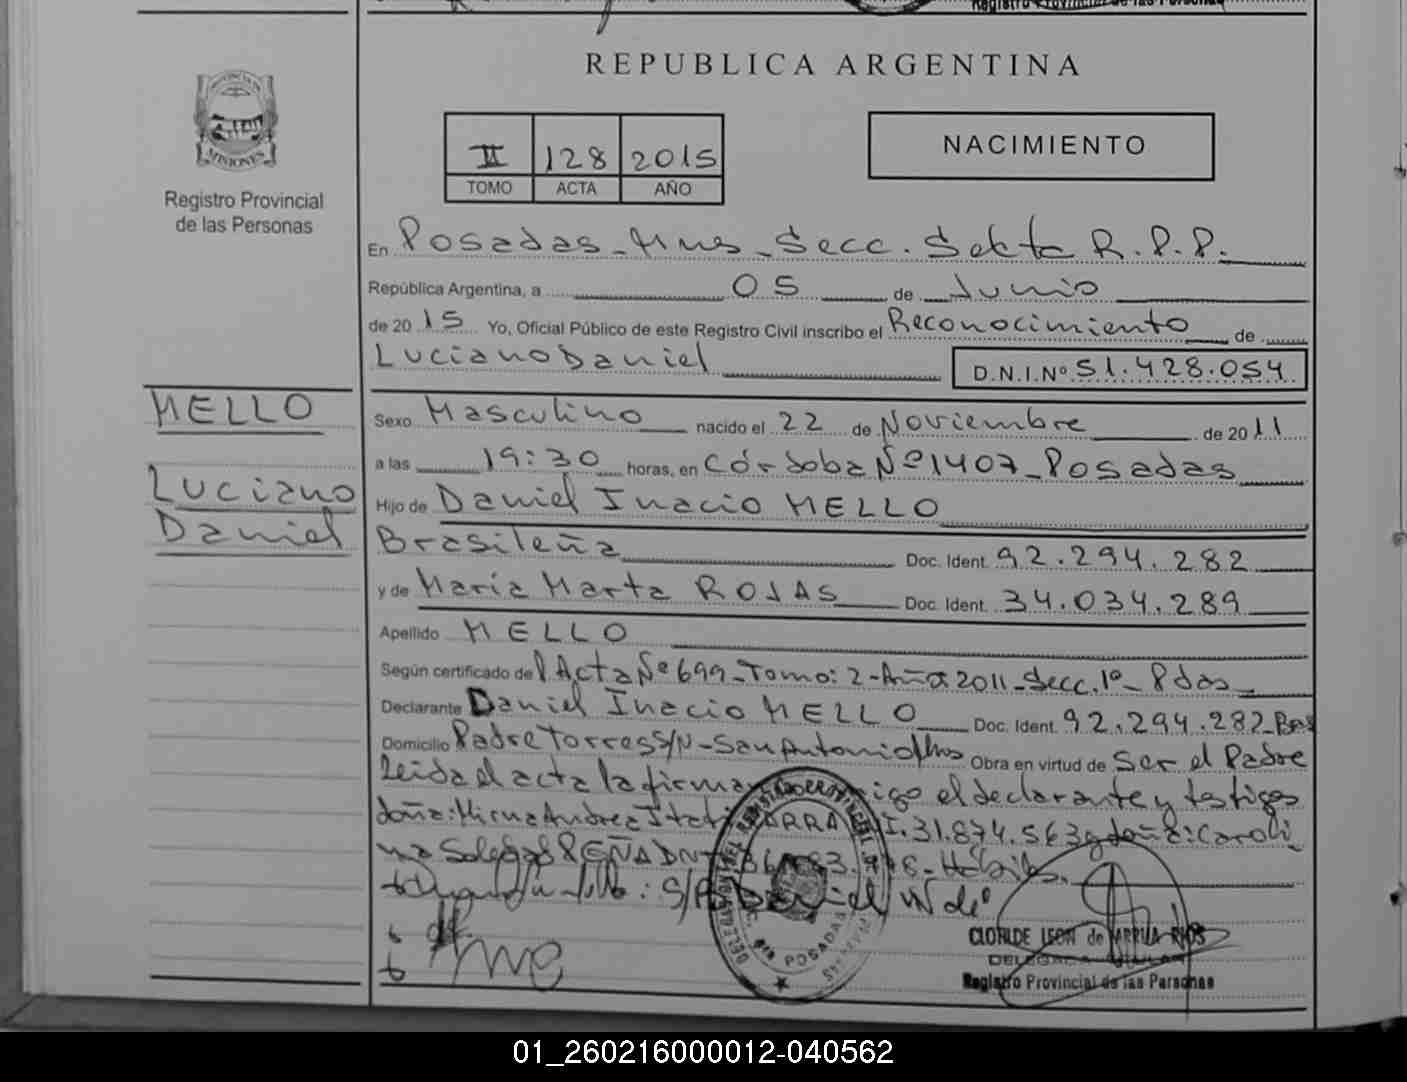 Registro Provincial de las Personas
REPUBLICA ARGENTINA
PROVINCIA DE
MISIONES
Registro Provincial
de las Personas
II 128 2015
TOMO ACTA AÑO
NACIMIENTO
En Posadas-Mnes-Secc. Sexta R.P.P.
República Argentina, a 05 de Junio
de 2015 Yo, Oficial Público de este Registro Civil inscribo el Reconocimiento de
Luciano Daniel D.N.I.Nº 51.428.054
MELLO
Luciano
Daniel
Sexo Masculino nacido el 22 de Noviembre de 2011
a las 19:30 horas, en Córdoba Nº1407-Posadas
Hijo de Daniel Inacio MELLO
Brasileña Doc. Ident. 92.294.282
y de María Marta ROJAS Doc. Ident. 34.034.289
Apellido MELLO
Según certificado del Acta Nº 699-Tomo: 2-Año: 2011-Secc. 1º-Pdas
Declarante Daniel Inacio MELLO Doc. Ident. 92.294.282-Bras
Domicilio Padre Torres S/N-San Antonio Mnes Obra en virtud de Ser el Padre
Leida el acta la firma migo el declarante y testigos
doña: Mirna Andrea Itatí 31.874.563 y doña: Caroli
na Soledad PEÑA DNI Hábiles.
S/R: Daniel
POSADAS
CLORILDE LEON de RIOS
DELEGADA TITULAR
Registro Provincial de las Personas
01_260216000012-040562